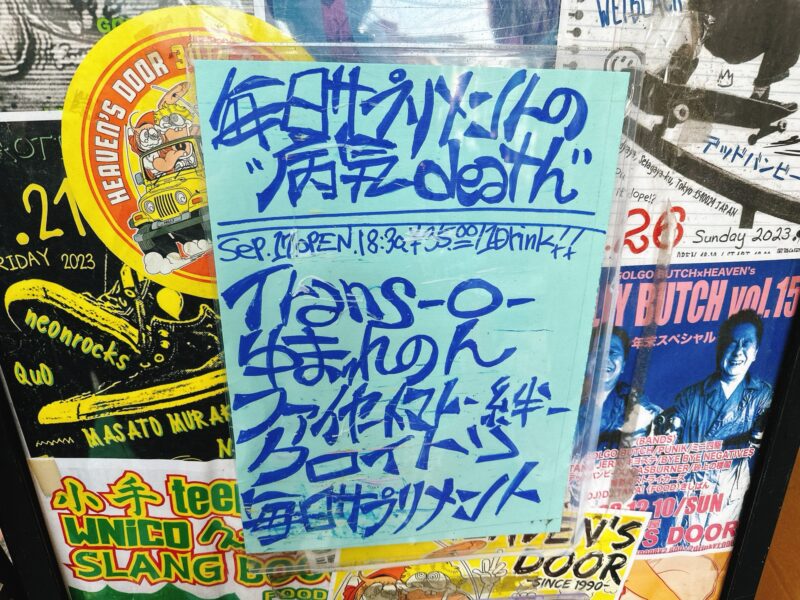 毎日サプリメントの
"病気-death"
Sep.17.OPEN.18:30 ¥3500=/1Drink!!
Trans-O-
ゆまゎれのん
ファイヤートマト-絆-
クロイトツ
毎日サプリメント
HEAVEN'S DOOR
.21
FRIDAY 2023
neonrocks
QuO
MASATO MURA
小手 teen
WNiCO
SLANG BOO
FOOD
デッドバンビー
Setagaya-ku, Tokyo
JAPAN
26 Sunday 2023
GOLGO BUTCH×HEAVEN's
BUTCH vol.15
年末スペシャル
(BANDS)
GOLGO BUTCH/PUNIK/
BYE BYE NEGATIVES
(FOOD)
12.10/SUN
DOOR
HEAVEN'S
DOOR
-SINCE 1990-